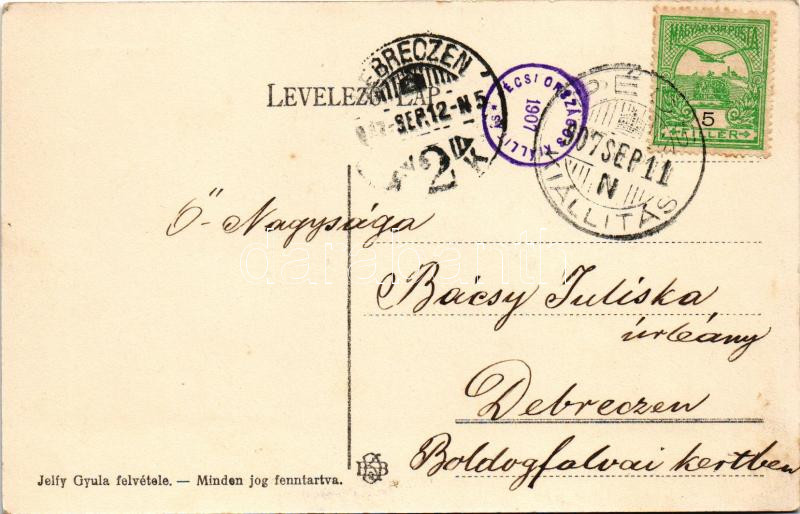 MAGYAR KIR. POSTA
5
FILLÉR
DEBRECZEN
SEP.12-N5
2
LEVELEZŐ-LAP
PÉCSI ORSZÁGOS KIÁLLITÁS
1907
907 SEP 11
N
KIÁLLITÁS
Ő Nagysága
Bácsy Juliska
úrleány
Debreczen
Boldogfalvai kertben
Jelfy Gyula felvétele. — Minden jog fenntartva.
darabanth